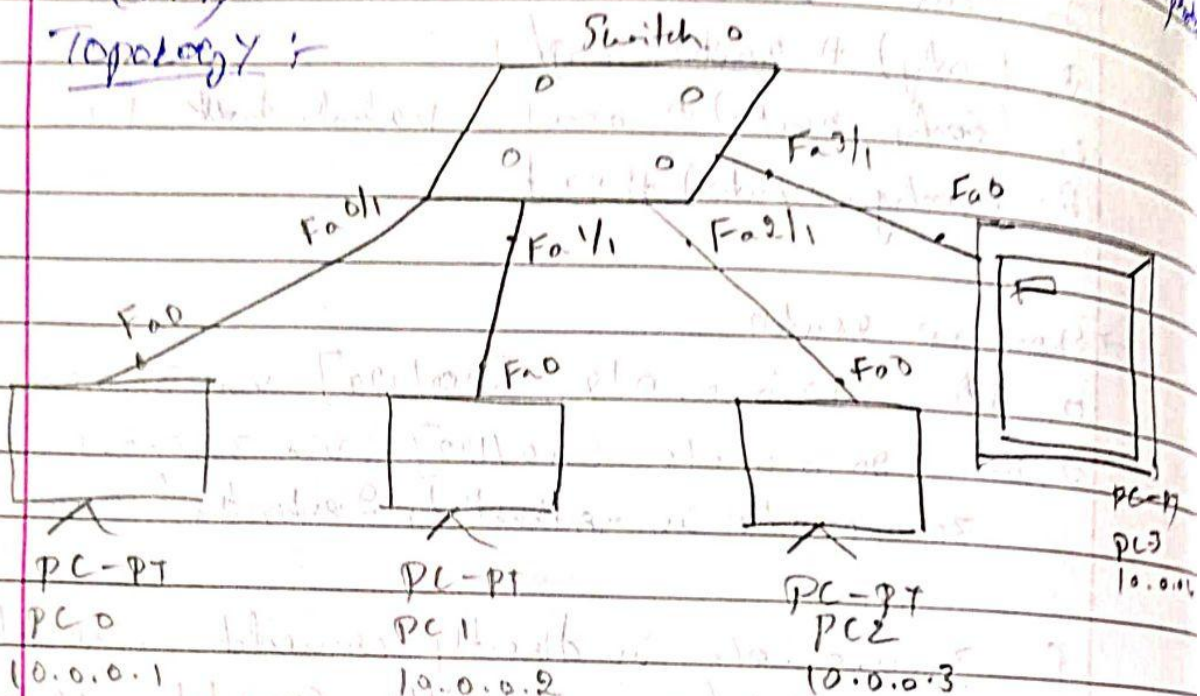 Topology :-
Switch 0
Fa0/1
Fa1/1
Fa2/1
Fa3/1
Fa0
Fa0
Fa0
Fa0
PC-PT
PC 0
10.0.0.1
PC-PT
PC 1
10.0.0.2
PC-PT
PC2
10.0.0.3
PC-PT
PC3